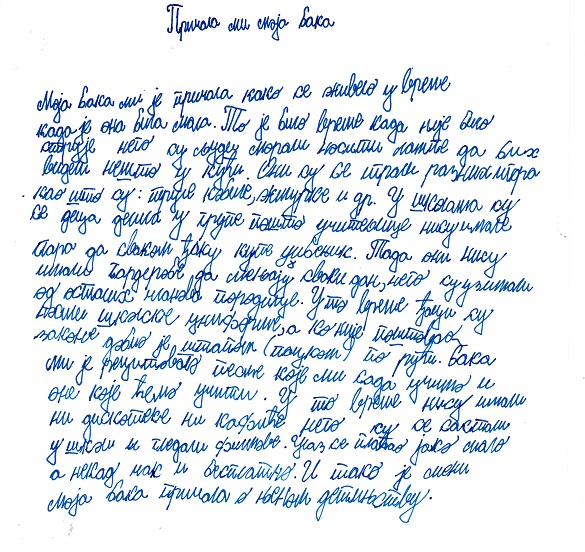 Причала ми моја бака
Моја бака ми је причала како се живело у време
када је она била мала. То је било време када није било
струје него су људи морали носити лампе да би их
видети нешто у кући. Они су се играли разних игара
као што су: труле кобиле, жмурке и др. У школама су
се деца делила у групе пошто учитељице нису имале
пара да сваком ђаку купе уџбеник. Тада они нису
имали гардеробе да мењају сваки дан, него су узимали
од осталих чланова породице. У то време ђаци су
носили школске униформе, а ко није поштовао
законе добио је штапом (прутом) по рути. Бака
ми је рецитовала песме које ми сада учимо и
оне које ћемо учити. У то време нису имали
ни дискотеке ни кафиће него су се састали
у школи и гледали филмове. Улаз се плаћао јако мало
а некад чак и бесплатно. И тако је мени
моја бака причала о њеном детињству.